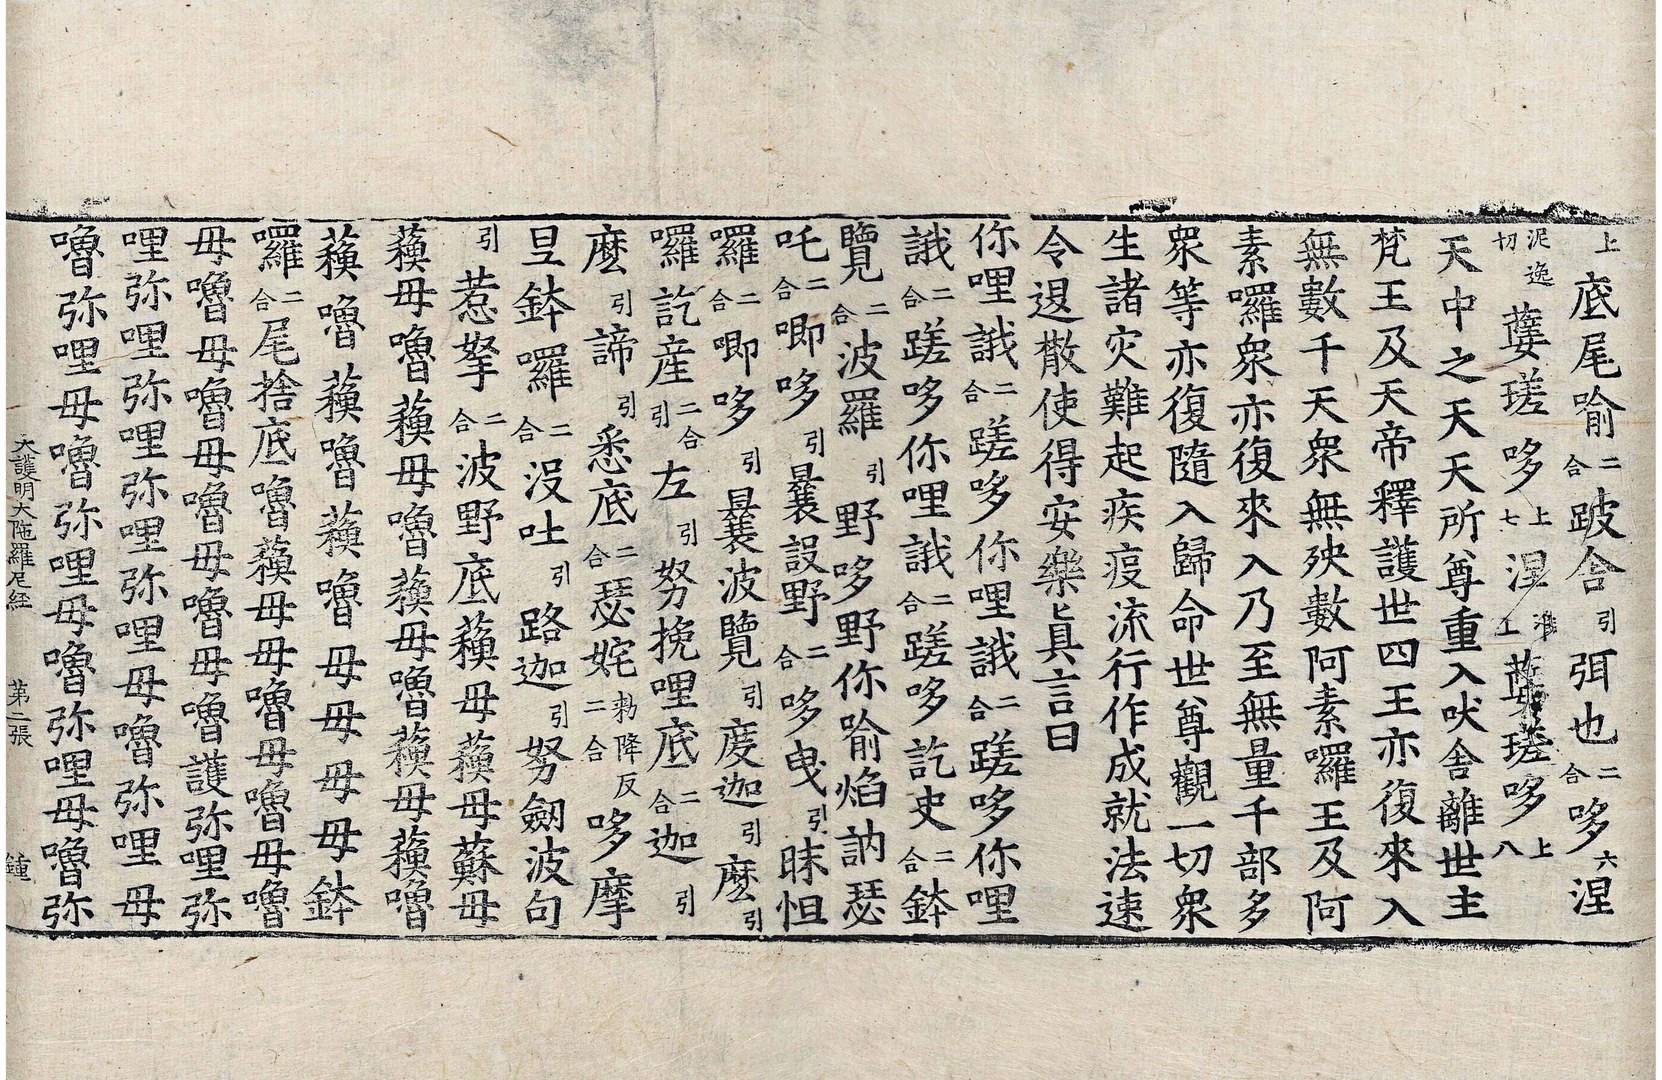 上底尾喻二合跛舍引弭也二合哆六涅
泥逸切蘖瑳哆上七涅準上蘖瑳哆上八
天中之天天所尊重入吠舍離世主
梵王及天帝釋護世四王亦復來入
無數千天衆無殃數阿素囉王及阿
素囉衆亦復來入乃至無量千部多
衆等亦復隨入歸命世尊觀一切衆
生諸灾難起疾疫流行作成就法速
令退散使得安樂真言曰
你哩誐二合蹉哆你哩誐二合蹉哆你哩
誐二合蹉哆你哩誐二合蹉哆訖史二合鉢
覽二合波羅引野哆野你喻焰訥瑟
吒二合唧哆引曩設野二合哆曳引昧怛
囉二合唧哆引曩波覽引度迦引麽引
囉訖產二合引左引努挽哩底二合迦引
麽引諦引悉底二合瑟姹二合勑降反哆摩
旦鉢囉二合没吐引路迦引努劒波句
引惹拏二合波野底蘓母蘓母蘇母
蘓母嚕蘓母嚕蘓母嚕蘓母蘓嚕
蘓嚕蘓嚕蘓嚕母母母母鉢
囉二合尾捨底嚕蘓母母嚕母嚕母嚕
母嚕母嚕母嚕母嚕母嚕護弥哩弥
哩弥哩弥哩弥哩弥哩母嚕弥哩母
嚕弥哩母嚕弥哩母嚕弥哩母嚕弥
大護明大陁羅尼經 第二張 鍾